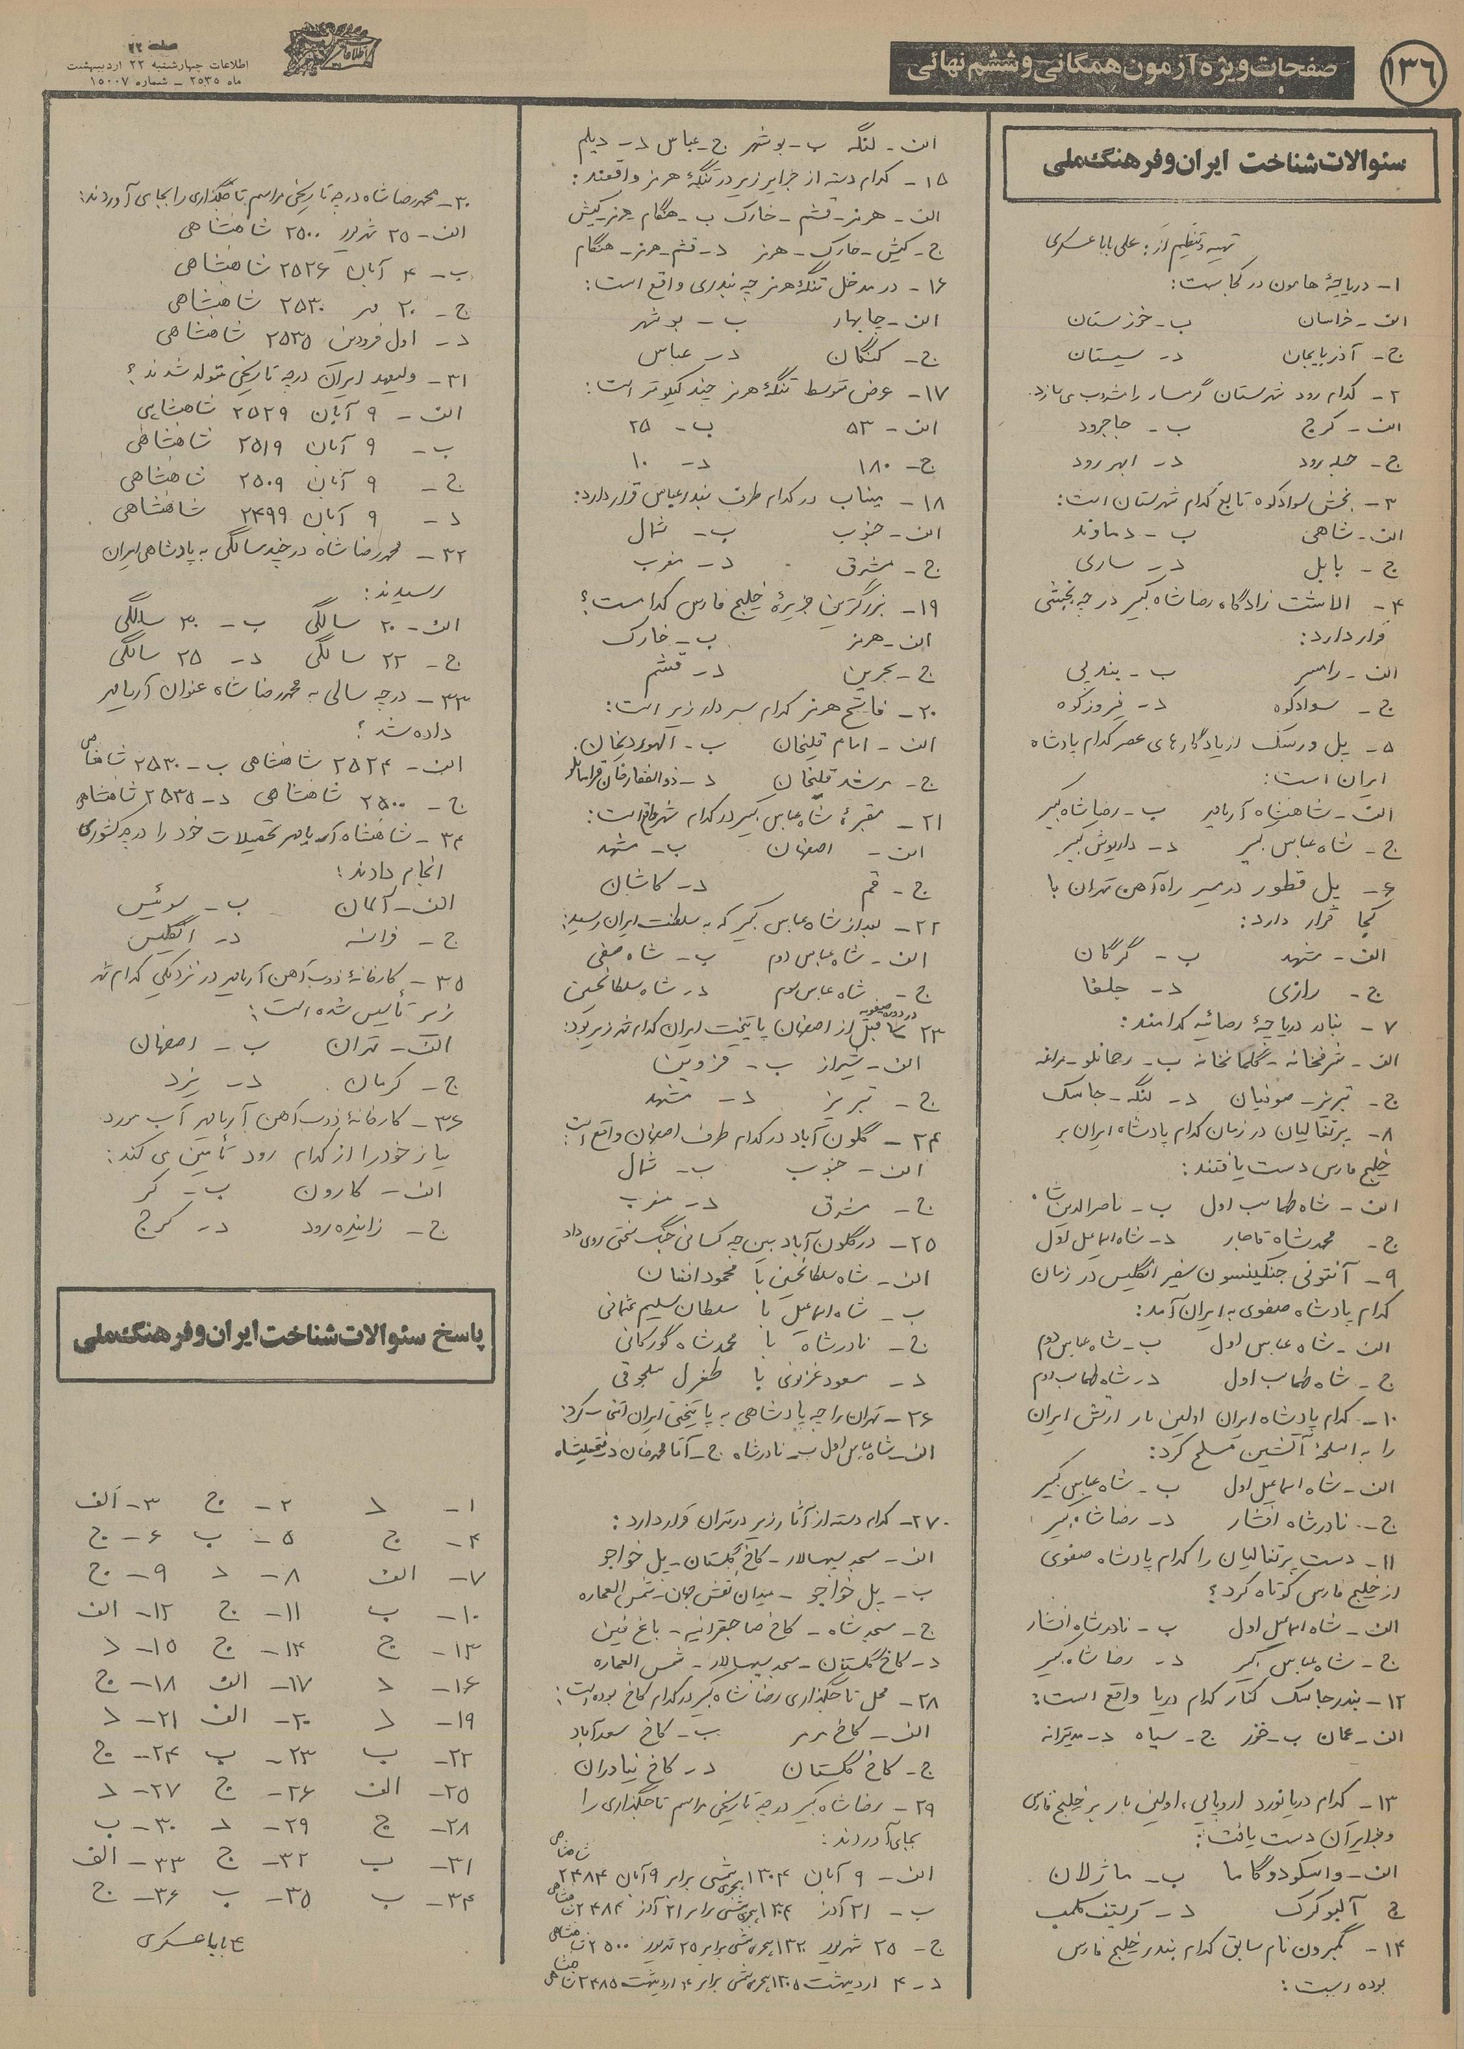 ۱۳۶
صفحات ویژه آزمون همگانی و ششم نهائی
صفحه ۲۲
اطلاعات چهارشنبه ۲۲ اردیبهشت
ماه ۲۵۳۵ – شماره ۱۵۰۰۷
سئوالات شناخت ایران و فرهنگ ملی
تهیه و تنظیم از: علی بابا عسکری
۱- دریاچهٔ هامون در کجاست:
الف- خراسان ب- خوزستان
ج- آذربایجان د- سیستان
۲- کدام رود شهرستان گرمسار را مشروب می‌سازد
الف- کرج ب- جاجرود
ج- حبله رود د- ابهر رود
۳- بخش سوادکوه تابع کدام شهرستان است:
الف- شاهی ب- دماوند
ج- بابل د- ساری
۴- الاشت زادگاه رضاشاه کبیر در چه بخشی
قرار دارد:
الف- رامسر ب- بندپی
ج- سوادکوه د- فیروزکوه
۵- پل ورسک از یادگارهای عصر کدام پادشاه
ایران است:
الف- شاهنشاه آریامهر ب- رضاشاه کبیر
ج- شاه عباس کبیر د- داریوش کبیر
۶- پل قطور در مسیر راه آهن تهران با
کجا قرار دارد:
الف- مشهد ب- گرگان
ج- رازی د- جلفا
۷- بنادر دریاچهٔ رضائیه کدامند:
الف- شرفخانه- گلمانخانه ب- رحمانلو- مراغه
ج- تبریز- صوفیان د- لنگه- جاسک
۸- پرتغالیان در زمان کدام پادشاه ایران بر
خلیج فارس دست یافتند:
الف- شاه طهماسب اول ب- ناصرالدین شاه
ج- محمدشاه قاجار د- شاه اسماعیل اول
۹- آنتونی جنکینسون سفیر انگلیس در زمان
کدام پادشاه صفوی به ایران آمد:
الف- شاه عباس اول ب- شاه عباس دوم
ج- شاه طهماسب اول د- شاه طهماسب دوم
۱۰- کدام پادشاه ایران اولین بار ارتش ایران
را به اسلحهٔ آتشین مسلح کرد:
الف- شاه اسماعیل اول ب- شاه عباس کبیر
ج- نادرشاه افشار د- رضاشاه کبیر
۱۱- دست پرتغالیان را کدام پادشاه صفوی
از خلیج فارس کوتاه کرد؟
الف- شاه اسماعیل اول ب- نادرشاه افشار
ج- شاه عباس کبیر د- رضاشاه کبیر
۱۲- بندر جاسک کنار کدام دریا واقع است:
الف- عمان ب- خزر ج- سیاه د- مدیترانه
۱۳- کدام دریانورد اروپایی، اولین بار بر خلیج فارس
و جزایر آن دست یافت:
الف- واسکودوگاما ب- ماژلان
ج آلبوکرک د- کریستف کلمب
۱۴- گمبرون نام سابق کدام بندر خلیج فارس
بوده است:
الف- لنگه ب- بوشهر ج- عباس د- دیلم
۱۵- کدام دسته از جزایر زیر در تنگهٔ هرمز واقعند:
الف- هرمز- قشم- خارک ب- هنگام هرمز- کیش
ج- کیش- خارک- هرمز د- قشم- هرمز- هنگام
۱۶- در مدخل تنگهٔ هرمز چه بندری واقع است:
الف- چابهار ب- بوشهر
ج- کنگان د- عباس
۱۷- عرض متوسط تنگهٔ هرمز چند کیلومتر است:
الف- ۵۳ ب- ۲۵
ج- ۱۸۰ د- ۱۰
۱۸- میناب در کدام طرف بندرعباس قرار دارد:
الف- جنوب ب- شمال
ج- مشرق د- مغرب
۱۹- بزرگترین جزیرهٔ خلیج فارس کدامست؟
الف- هرمز ب- خارک
ج- بحرین د- قشم
۲۰- فاتح هرمز کدام سردار زیر است:
الف- امام قلیخان ب- الهوردیخان
ج- مرشد قلیخان د- ذوالفقارخان قرامانلو
۲۱- مقبرهٔ شاه عباس کبیر در کدام شهر واقع است:
الف- اصفهان ب- مشهد
ج- قم د- کاشان
۲۲- بعد از شاه عباس کبیر که به سلطنت ایران رسید:
الف- شاه عباس دوم ب- شاه صفی
ج- شاه عباس سوم د- شاه سلطانحسین
۲۳- در دوره صفویه قبل از اصفهان پایتخت ایران کدام شهر زیر بود:
الف- شیراز ب- قزوین
ج- تبریز د- مشهد
۲۴- گلون آباد در کدام طرف اصفهان واقع است:
الف- جنوب ب- شمال
ج- مشرق د- مغرب
۲۵- در گلون آباد بین چه کسانی جنگ سختی روی داد
الف- شاه سلطانحسین با محمود افغان
ب- شاه اسماعیل با سلطان سلیم عثمانی
ج- نادرشاه با محمدشاه گورکانی
د- مسعود غزنوی با طغرل سلجوقی
۲۶- تهران را چه پادشاهی به پایتختی ایران انتخاب کرد:
الف- شاه عباس اول ب- نادرشاه ج- آقامحمدخان د- فتحعلیشاه
۲۷- کدام دسته از آثار زیر در تهران قرار دارد:
الف- مسجد سپهسالار- کاخ گلستان- پل خواجو
ب- پل خواجو- میدان نقش جهان- شمس العماره
ج- مسجد شاه- کاخ صاحبقرانیه- باغ فین
د- کاخ گلستان- مسجد سپهسالار- شمس العماره
۲۸- محل تاجگذاری رضاشاه کبیر در کدام کاخ بوده است:
الف- کاخ مرمر ب- کاخ سعدآباد
ج- کاخ گلستان د- کاخ نیاوران
۲۹- رضاشاه کبیر در چه تاریخی مراسم تاجگذاری را
بجای آوردند:
الف- ۹ آبان ۱۳۰۴ هجری شمسی برابر ۹ آبان ۲۴۸۴ شاهنشاهی
ب- ۲۱ آذر ۱۳۰۴ هجری شمسی برابر ۲۱ آذر ۲۴۸۴ شاهنشاهی
ج- ۲۵ شهریور ۱۳۲۰ هجری شمسی برابر ۲۵ شهریور ۲۵۰۰ شاهنشاهی
د- ۴ اردیبهشت ۱۳۰۵ هجری شمسی برابر ۴ اردیبهشت ۲۴۸۵ شاهنشاهی
۳۰- محمدرضاشاه در چه تاریخی مراسم تاجگذاری را بجای آوردند:
الف- ۲۵ شهریور ۲۵۰۰ شاهنشاهی
ب- ۴ آبان ۲۵۲۶ شاهنشاهی
ج- ۲۰ مهر ۲۵۳۰ شاهنشاهی
د- اول فروردین ۲۵۳۵ شاهنشاهی
۳۱- ولیعهد ایران در چه تاریخی متولد شدند؟
الف- ۹ آبان ۲۵۲۹ شاهنشاهی
ب- ۹ آبان ۲۵۱۹ شاهنشاهی
ج- ۹ آبان ۲۵۰۹ شاهنشاهی
د- ۹ آبان ۲۴۹۹ شاهنشاهی
۳۲- محمدرضاشاه در چند سالگی به پادشاهی ایران
رسیدند:
الف- ۲۰ سالگی ب- ۳۰ سالگی
ج- ۲۲ سالگی د- ۲۵ سالگی
۳۳- در چه سالی به محمدرضاشاه عنوان آریامهر
داده شد؟
الف- ۲۵۲۴ شاهنشاهی ب- ۲۵۳۰ شاهنشاهی
ج- ۲۵۰۰ شاهنشاهی د- ۲۵۳۵ شاهنشاهی
۳۴- شاهنشاه آریامهر تحصیلات خود را در چه کشوری
انجام دادند:
الف- آلمان ب- سوئیس
ج- فرانسه د- انگلیس
۳۵- کارخانهٔ ذوب آهن آریامهر در نزدیکی کدام شهر
زیر تأسیس شده است:
الف- تهران ب- اصفهان
ج- کرمان د- یزد
۳۶- کارخانهٔ ذوب آهن آریامهر آب مورد
نیاز خود را از کدام رود تأمین می کند:
الف- کارون ب- کر
ج- زاینده رود د- کرج
پاسخ سئوالات شناخت ایران و فرهنگ ملی
۱- د ۲- ج ۳- الف
۴- ج ۵- ب ۶- ج
۷- الف ۸- د ۹- ج
۱۰- ب ۱۱- ج ۱۲- الف
۱۳- ج ۱۴- ج ۱۵- د
۱۶- د ۱۷- الف ۱۸- ج
۱۹- د ۲۰- الف ۲۱- د
۲۲- ب ۲۳- ب ۲۴- ج
۲۵- الف ۲۶- ج ۲۷- د
۲۸- ج ۲۹- د ۳۰- ب
۳۱- ب ۳۲- ج ۳۳- الف
۳۴- ب ۳۵- ب ۳۶- ج
ع بابا عسکری